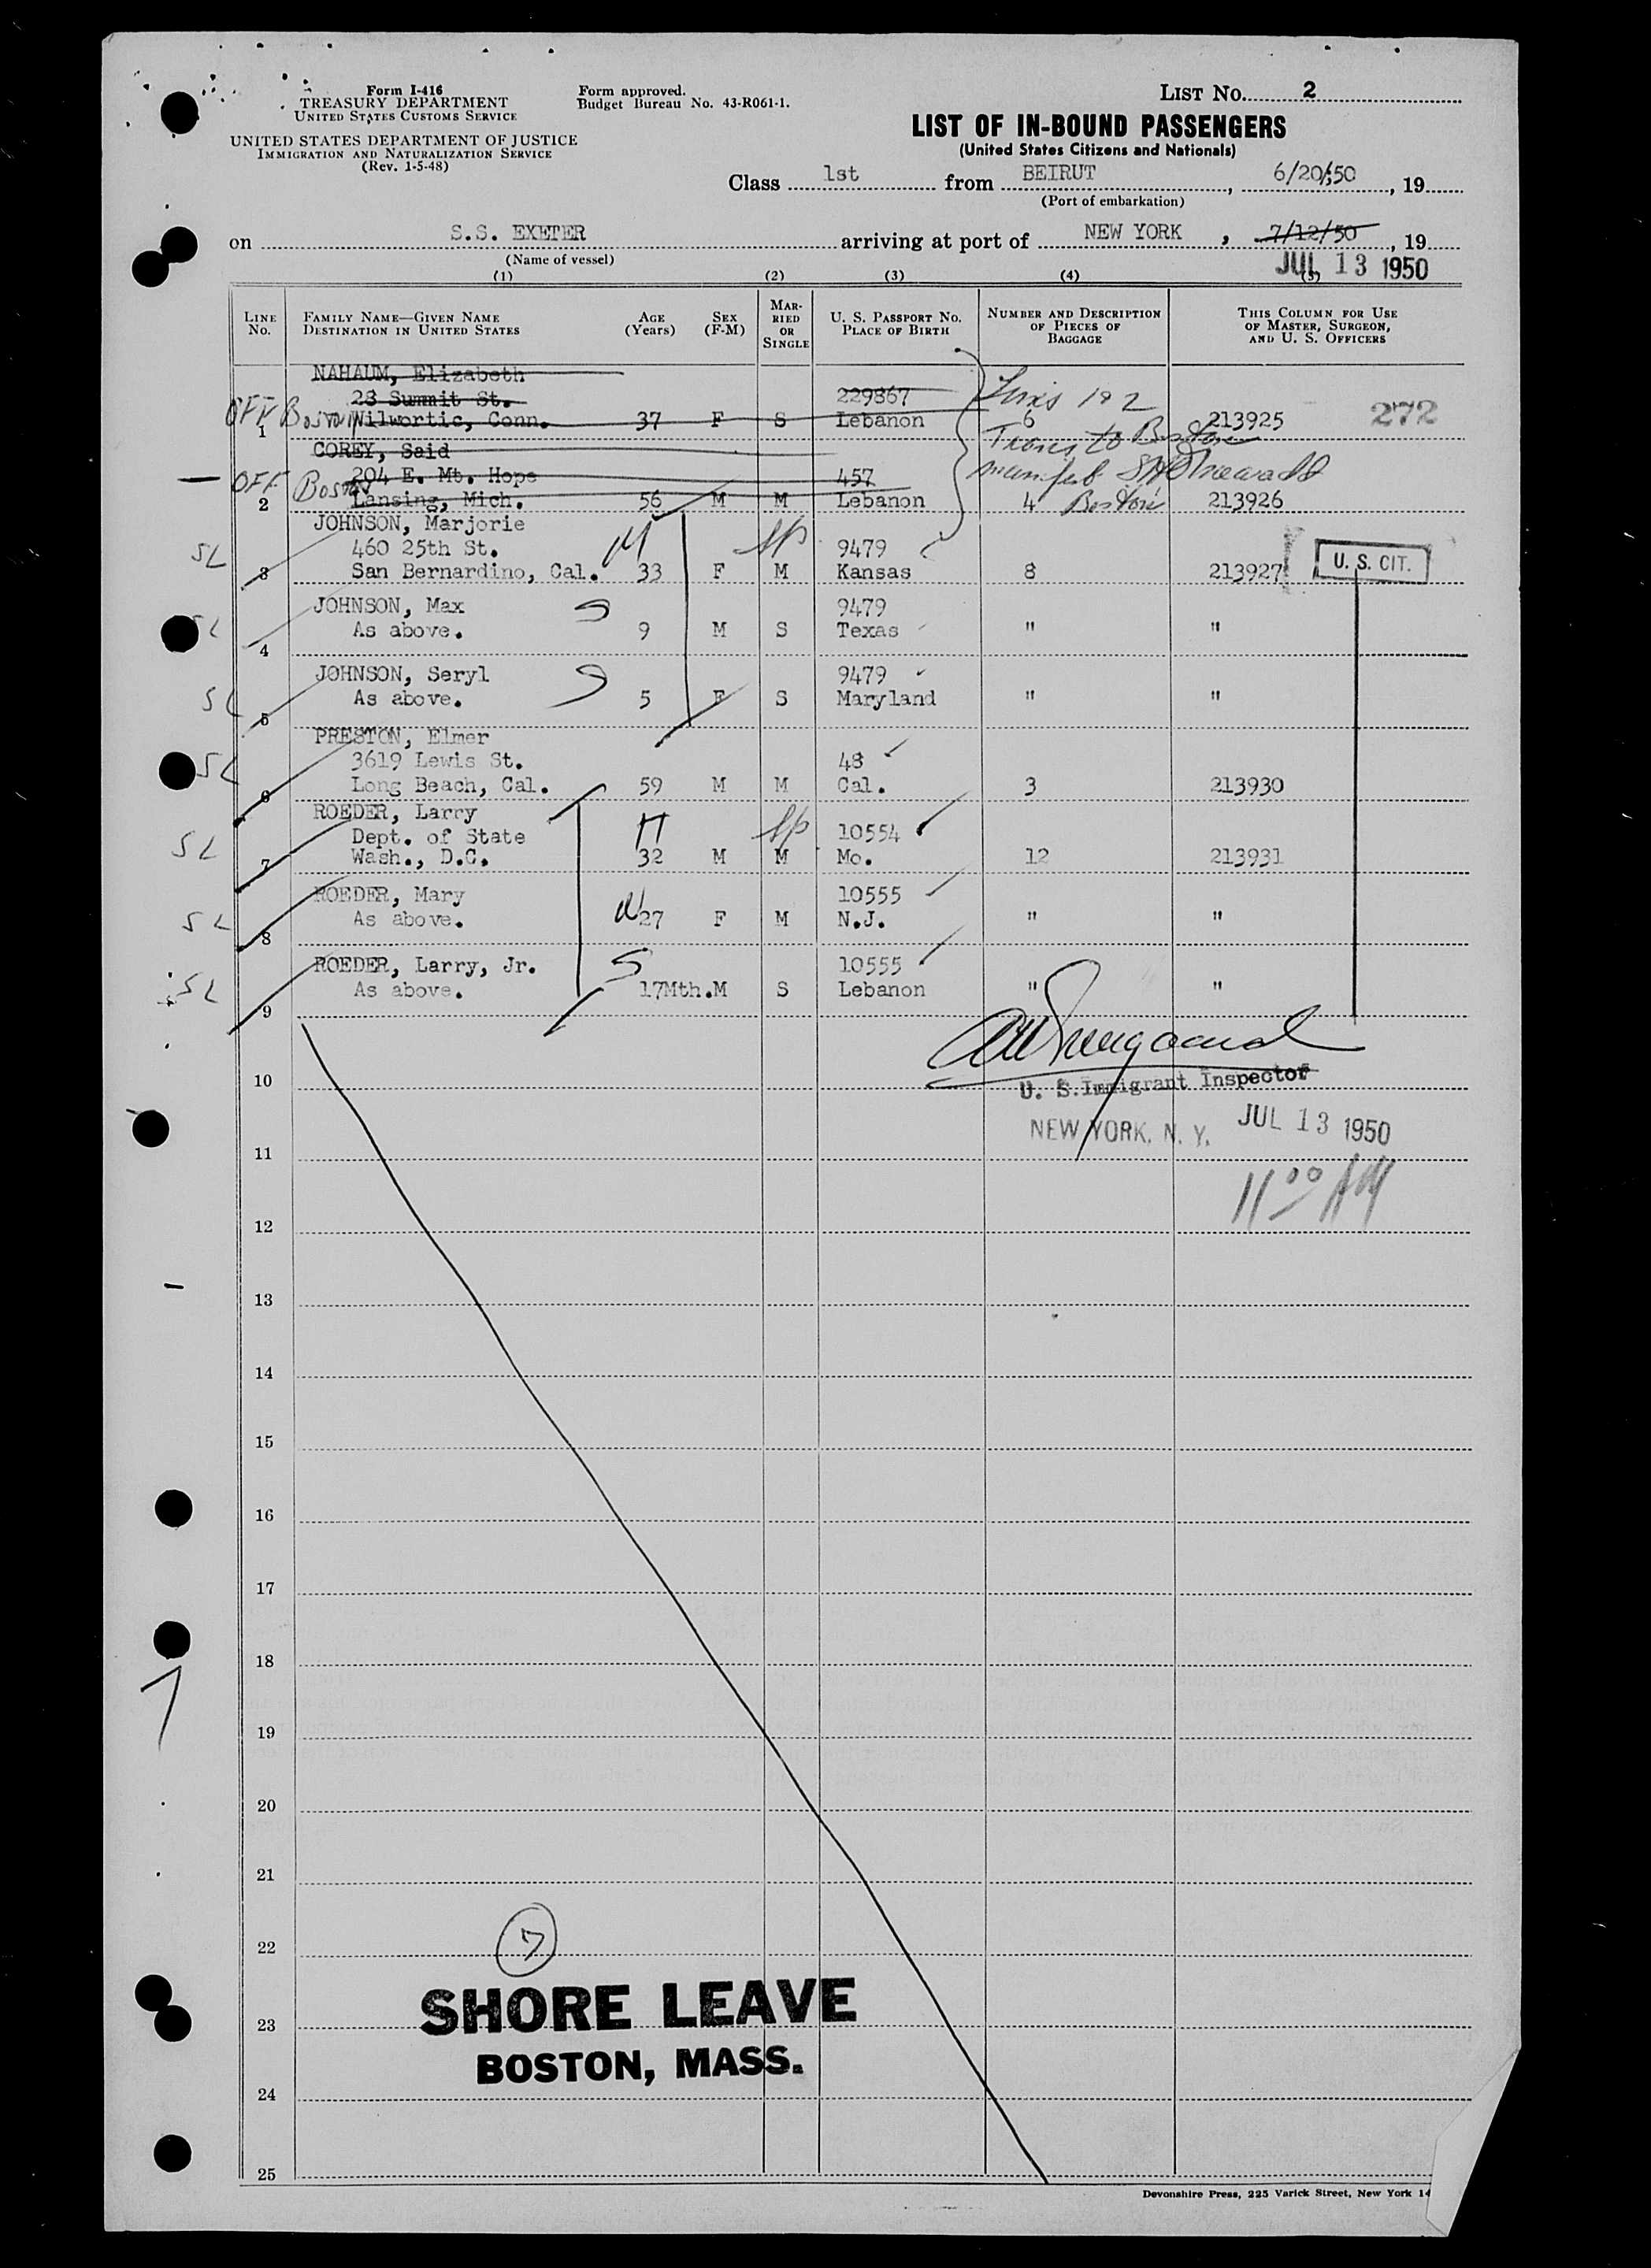 Form I-416
TREASURY DEPARTMENT
UNITED STATES CUSTOMS SERVICE
UNITED STATES DEPARTMENT OF JUSTICE
IMMIGRATION AND NATURALIZATION SERVICE
(Rev. 1-5-48)
Form approved.
Budget Bureau No. 43-R061-1.
LIST No. 2
LIST OF IN-BOUND PASSENGERS
(United States Citizens and Nationals)
Class 1st from BEIRUT, 6/20/50, 19
(Port of embarkation)
on S.S. EXETER arriving at port of NEW YORK, 7/12/50, 19
(Name of vessel)
JUL 13 1950
(1) (2) (3) (4) (5)
LINE No. FAMILY NAME—GIVEN NAME DESTINATION IN UNITED STATES AGE (Years) SEX (F-M) MARRIED OR SINGLE U. S. PASSPORT No. PLACE OF BIRTH NUMBER AND DESCRIPTION OF PIECES OF BAGGAGE THIS COLUMN FOR USE OF MASTER, SURGEON, AND U. S. OFFICERS
NAHAUM, Elizabeth
28 Summit St. 229867 Lines 1 & 2
OFF Boston Wilwortic, Conn. 37 F S Lebanon 6 213925 272
1
Trans to Boston
COREY, Said
204 E. Mt. Hope 457 manifest
OFF Boston Lansing, Mich. 56 M M Lebanon 4 Boston 213926
2
JOHNSON, Marjorie
460 25th St. M 9479
SL 3 San Bernardino, Cal. 33 F M Kansas 8 213927 U. S. CIT.
JOHNSON, Max S 9479
SL As above. 9 M S Texas " "
4
JOHNSON, Seryl S 9479
SL As above. 5 F S Maryland " "
5
PRESTON, Elmer
3619 Lewis St. 48
SL 6 Long Beach, Cal. 59 M M Cal. 3 213930
ROEDER, Larry
Dept. of State H 10554
SL 7 Wash., D.C. 32 M M Mo. 12 213931
ROEDER, Mary 10555
SL As above. W 27 F M N.J. " "
8
ROEDER, Larry, Jr. S 10555
SL As above. 17Mth. M S Lebanon " "
9
10
U. S. Immigrant Inspector
NEW YORK, N. Y. JUL 13 1950
11
11 00 AM
12
13
14
15
16
17
18
19
20
21
22
7
SHORE LEAVE
23
BOSTON, MASS.
24
25
Devonshire Press, 225 Varick Street, New York 14